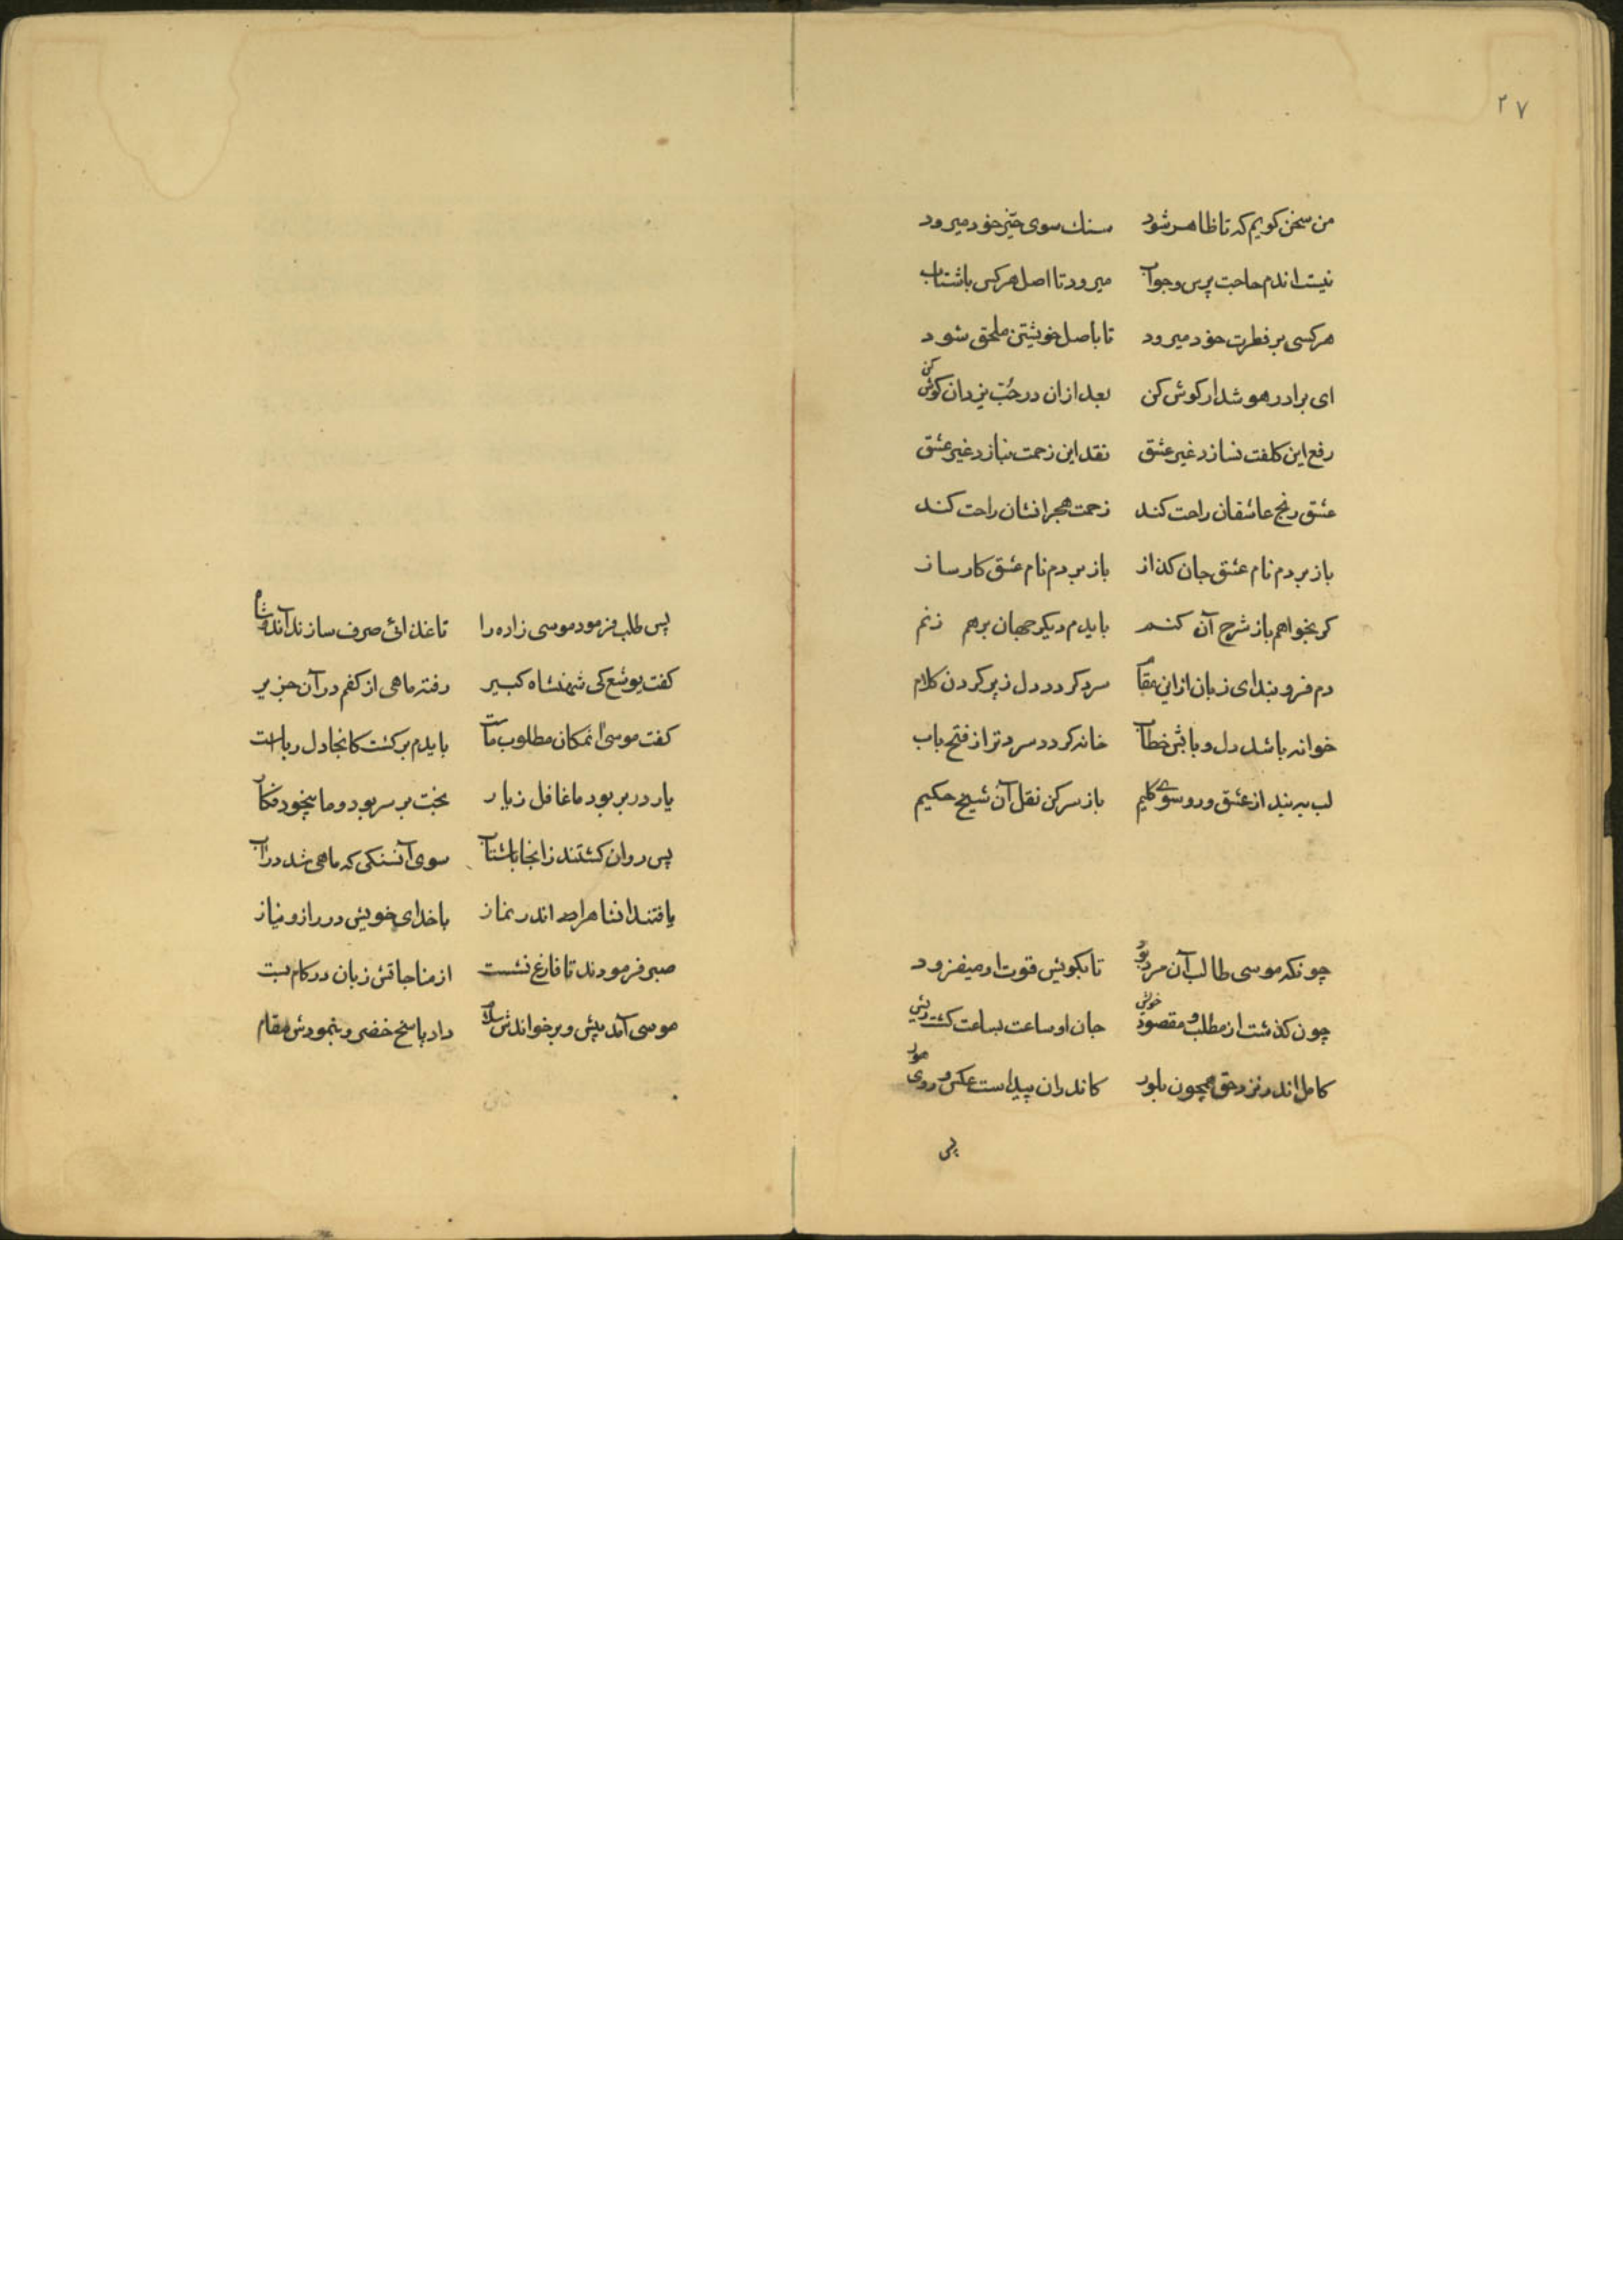 ۲۷
من سخن کویم که تا ظاهر شود سنك سوی حیّز خود میرود
نیست اندم حاجت پرس وجواب میرود تا اصل هرکس باشتاب
هرکسی بر فطرت خود میرود تا باصل خویشتن ملحق شود
ای برادر هوشدار کوش کن بعد ازان در حُبّ یزدان کوش کن
رفع این کلفت نسازد غیر عشق نقد این زحمت نبازد غیر عشق
عشق رنج عاشقان راحت کند زحمت هجرانشان راحت کند
باز بردم نام عشق جان کداز باز بردم نام عشق کارساز
کر بخواهم باز شرح آن کنم بایدم دیکر جهان برهم زنم
دم فرو بند ای زبان از این مقام سرد کردد دل ز پر کردن کلام
خوانه باشد دل و بابش خطاب خانه کردد سرد تر از فتح باب
لب به بند از عشق و رو سوی کلیم باز سر کن نقل آن شیخ حکیم
چونکه موسی طالب آن مرد بود تا بکویش قوت او میفزود
چون کذشت از مطلب و مقصود خویش جان او ساعت بساعت کشت ریش
کامل اندر نزد حق همچون بلور کاندران پیداست عکس و روی مور
پس
پس طلب فرمود موسی زاده را تا غذائی صرف سازند آندو شام
کفت یوشع کی شهنشاه کبیر رفته ماهی از کفم در آن جزیر
کفت موسی انمکان مطلوب ماست بایدم برکشت کانجا دل رباست
یار در بر بود ما غافل ز یار بخت بر سر بود و ما بیخود
پس روان کشتند زانجا باشتاب سوی آنسنکی که ماهی شد در آب
یافتند اندر نماز با خدای خویش در راز و نیاز
صبر فرمودند تا فارغ نشست از مناجاتش زبان در کام بست
موسی آمد پیش و بر خواندش سلام داد پاسخ خضر و بنمودش مقام